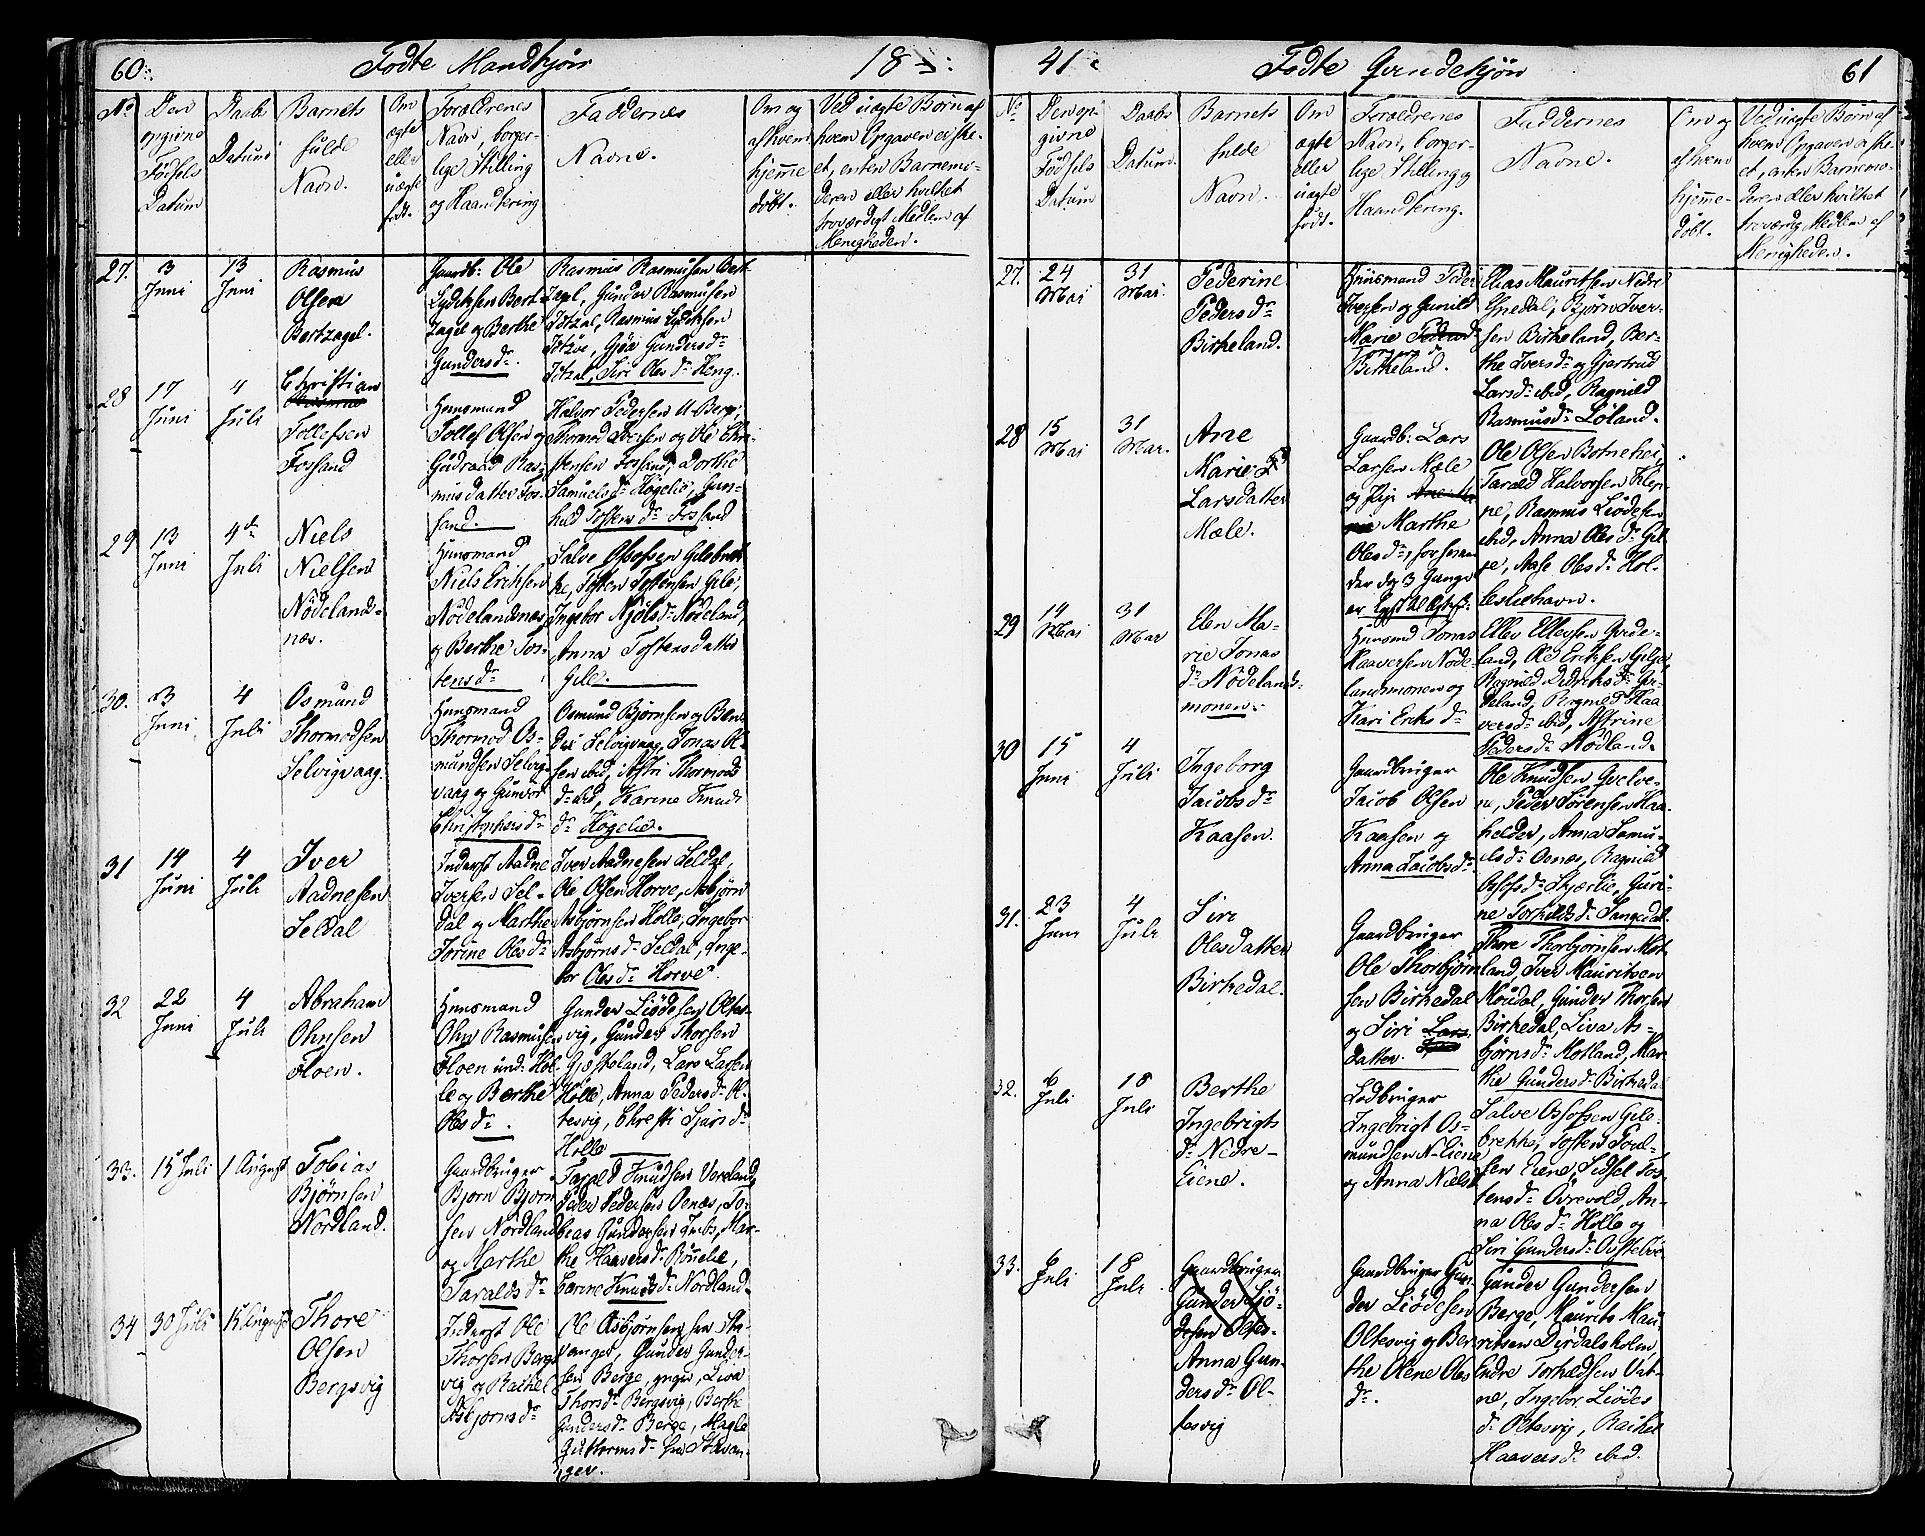 60. Fødte Mandkjøn 18
No
Den
opgivne
Fødsels
Datum
Daabs
Datum
Barnets
fulde
Navn.
Om
ægte
eller
uægte
født.
Forældrenes
Navn, borger-
lige Stilling
og Haandtering
Faddernes
Navne.
Om og
af hvem
hjemme
døbt.
Ved uægte Børn af
hvem Opgaven er ske-
et, enten Barnemo-
deren eller hvilket
troværdigt Medlem af
Menigheden.
27. 3
Juni
13
Juni
Rasmus
Olsen
Bertzagel.
Gaardb: Ole
Lydiksen Bert
zagel og Berthe
Gundersdr.
Rasmus Rasmusen Bert
zagel, Gunder Rasmusen
Rasmus Lydiksen
Gjøa Gundersdr
Siri Olesdr Heng.
28 17
Juni
4
Juli
Christian
Tollefsen
Fossand
Huusmand
Tollef Olsen og
Gudraad Ras-
musdatter Fos-
sand.
Halvor Pedersen U-Berge,
Thormod Iversen og Ole Chri-
stensen Fossand, Dorthe
Samuelsdr Høgelie, Gun-
hild Tostensdr Fossand
29 13
Juni
4de
Juli
Niels
Nielsen
Nødelands-
næs.
Huusmand
Niels Eriksen
Nødelandsnæs
og Berthe Tos-
tensdr
Salve Ossefsen Gilebrek
ke, Tosten Tostensen Gile,
Ingebor Njølsdr Nødeland,
Anna Tostensdatter
Gile.
30. 3
Juni
4
Juli
Osmund
Thormodsen
Selvigvaag.
Huusmand
Thormod Os-
mundsen Selvig
vaag og Gunvor
Christophersdr
Osmund Bjørnsen og Ben
Selvigvaag, Jonas Ol-
sen ibid, Astri Thormods
dr ibid, Karine Knuds
dr Høgelie.
31 14
Juni
4
Juli
Iver
Aadnesen
Seldal
Inderst Aadne
Iversen Sel-
dal og Marthe
Torine Olesdr
Iver Aadnesen Seldal,
Ole Olsen Horve, Asbjørn
Asbjørnsen Holle, Ingebor
Asbjørnsdr Seldal, Inge-
bor Olesdr Horve.
32 22
Juni
4
Juli
Abraham
Ohnsen
Floen.
Huusmand
Ohn Rasmusen
Floen und: Hol-
le og Berthe
Olesdr.
Gunder Liødesen Oltes-
vig, Gunder Thorsen
Gjesteland, Lars Larsen
Holle, Anna Pedersdr Ol-
tesvig, Chresti Sjursdr
Holle
33. 15 Juli
1 August
Tobias
Bjørnsen
Nordland.
Gaardbruger
Bjørn Bjørn
sen Nordland
og Marthe
Taraldsdr
Tarald Knudsen Voreland,
Peder Pedersen Oenæs, To-
bias Gundersen Mar-
the Haaversdr
Karine Knudsdr Nordland.
34 30 Juli
15 August
Thore
Olsen
Bergsvig
Inderst Ole
Thorsen Bergs
vig og Rachel
Asbjørnsdr
Ole Asbjørnsen fra Sta-
vanger, Gunder Gunder-
sen Berge, yngre, Liva
Thorsdr Bergsvig, Berthe
Gundersdr Berge, Magle
Guttormsdr fra Stavan-
ger.
41. Fødte Qvindekjøn 61
No
Den op-
givne
Fødsels
Datum
Daabs
Datum.
Barnets
fulde
Navn.
Om
ægte
eller
uægte
født.
Forældrenes
Navn, borger-
lige Stilling og
Haandtering.
Faddernes
Navne.
Om og
af hvem
hjemme-
døbt.
Ved uægte Børn af
hvem Opgaven er ske-
et, enten Barnemo-
deren eller hvilket
troværdig Medlem af
Menigheden.
27. 24
Mai
31
Mai.
Pederine
Pedersdr
Birkeland.
Huusmand Peder
Iversen og Gunild
Marie
Birkeland.
Elias Mauritsen Nedre
Espedal, Bjørn Iver-
sen Birkeland, Ber-
the Iversdr og Gjertrud
Larsdr ibid, Ragnild
Rasmusdr Løland.
28 15
Mai
31
Mai.
Ane
Marie
Larsdatter
Mæle.
Gaardb: Lars
Larsen Mæle
og Pige
Marthe
Olesdr,
3 Gange
er
Ole Olsen Botnehei,
Tarald Halvorsen Klep-
pe, Rasmus Liødesen
ibid, Anna Olesdr Gil
je, Aase Olesdr Hol-
leslihavn.
29 14
Mai
31
Mai
Elen Ma-
rie Jonas
dr Nødelands-
monen.
Huusmd Jonas
Haaversen Nøde-
landsmonen og
Kari Eriksdr
Ellev Ellevsen Gride-
land, Ole Eriksen Gilje,
Ragnild Didriksdr Gi-
deland, Ragnild Haa
versdr ibid, Affrine
Pedersdr Rødland.
30 15
Juni
4
Juli
Ingeborg
Jacobsdr
Kaasen.
Gaardbruger
Jacob Olsen
Kaasen og
Anna Jacobsdr
Ole Knudsen
Peder Sørensen Haa-
helder, Anna Samu-
elsdr Oenæs, Ragnild
Ossefsdr Skjærlie, Guri-
ne Torkildsdr
31. 23
Juni
4
Juli
Siri
Olesdatter
Birkedal.
Gaardbruger
Ole Thorbjørn
sen Birkedal
og Siri
datter.
Thore Thorbjørnsen Mot-
land, Iver Mauritsen
Moudal, Gunder Thorsen
Birkedal, Liva As-
bjørnsdr Motland, Mar-
the Gundersdr Birkedal
32. 6
Juli
18
Juli
Berthe
Ingebrigts
dr Nedre-
Eiene.
Lodbruger
Ingebrigt Os-
mundsen N-Eiene
og Anna Nielsdr
Salve Ossefsen Gile-
brekke, Tosten Poul-
sen Eiene, Sidsel Tos-
tensdr Øvrevold, An-
na Olesdr Holle og
Siri Gundersdr
33. 6
Juli
18
Juli
Gaardbruger
Gunder Liø-
desen Oltes-
Anna Gun-
dersdr Ol-
tesvig
Gaardbruger Gun
der Liødesen
Oltesvig og Ber-
the Elene Oles
dr.
Gunder Gundersen
Berge, Maurits Mau
ritsen Dirdalsholm,
Endre Torkildsen Vat-
ne, Ingebor Liødes
dr Oltesvig, Rachel
Haaversdr ibid.